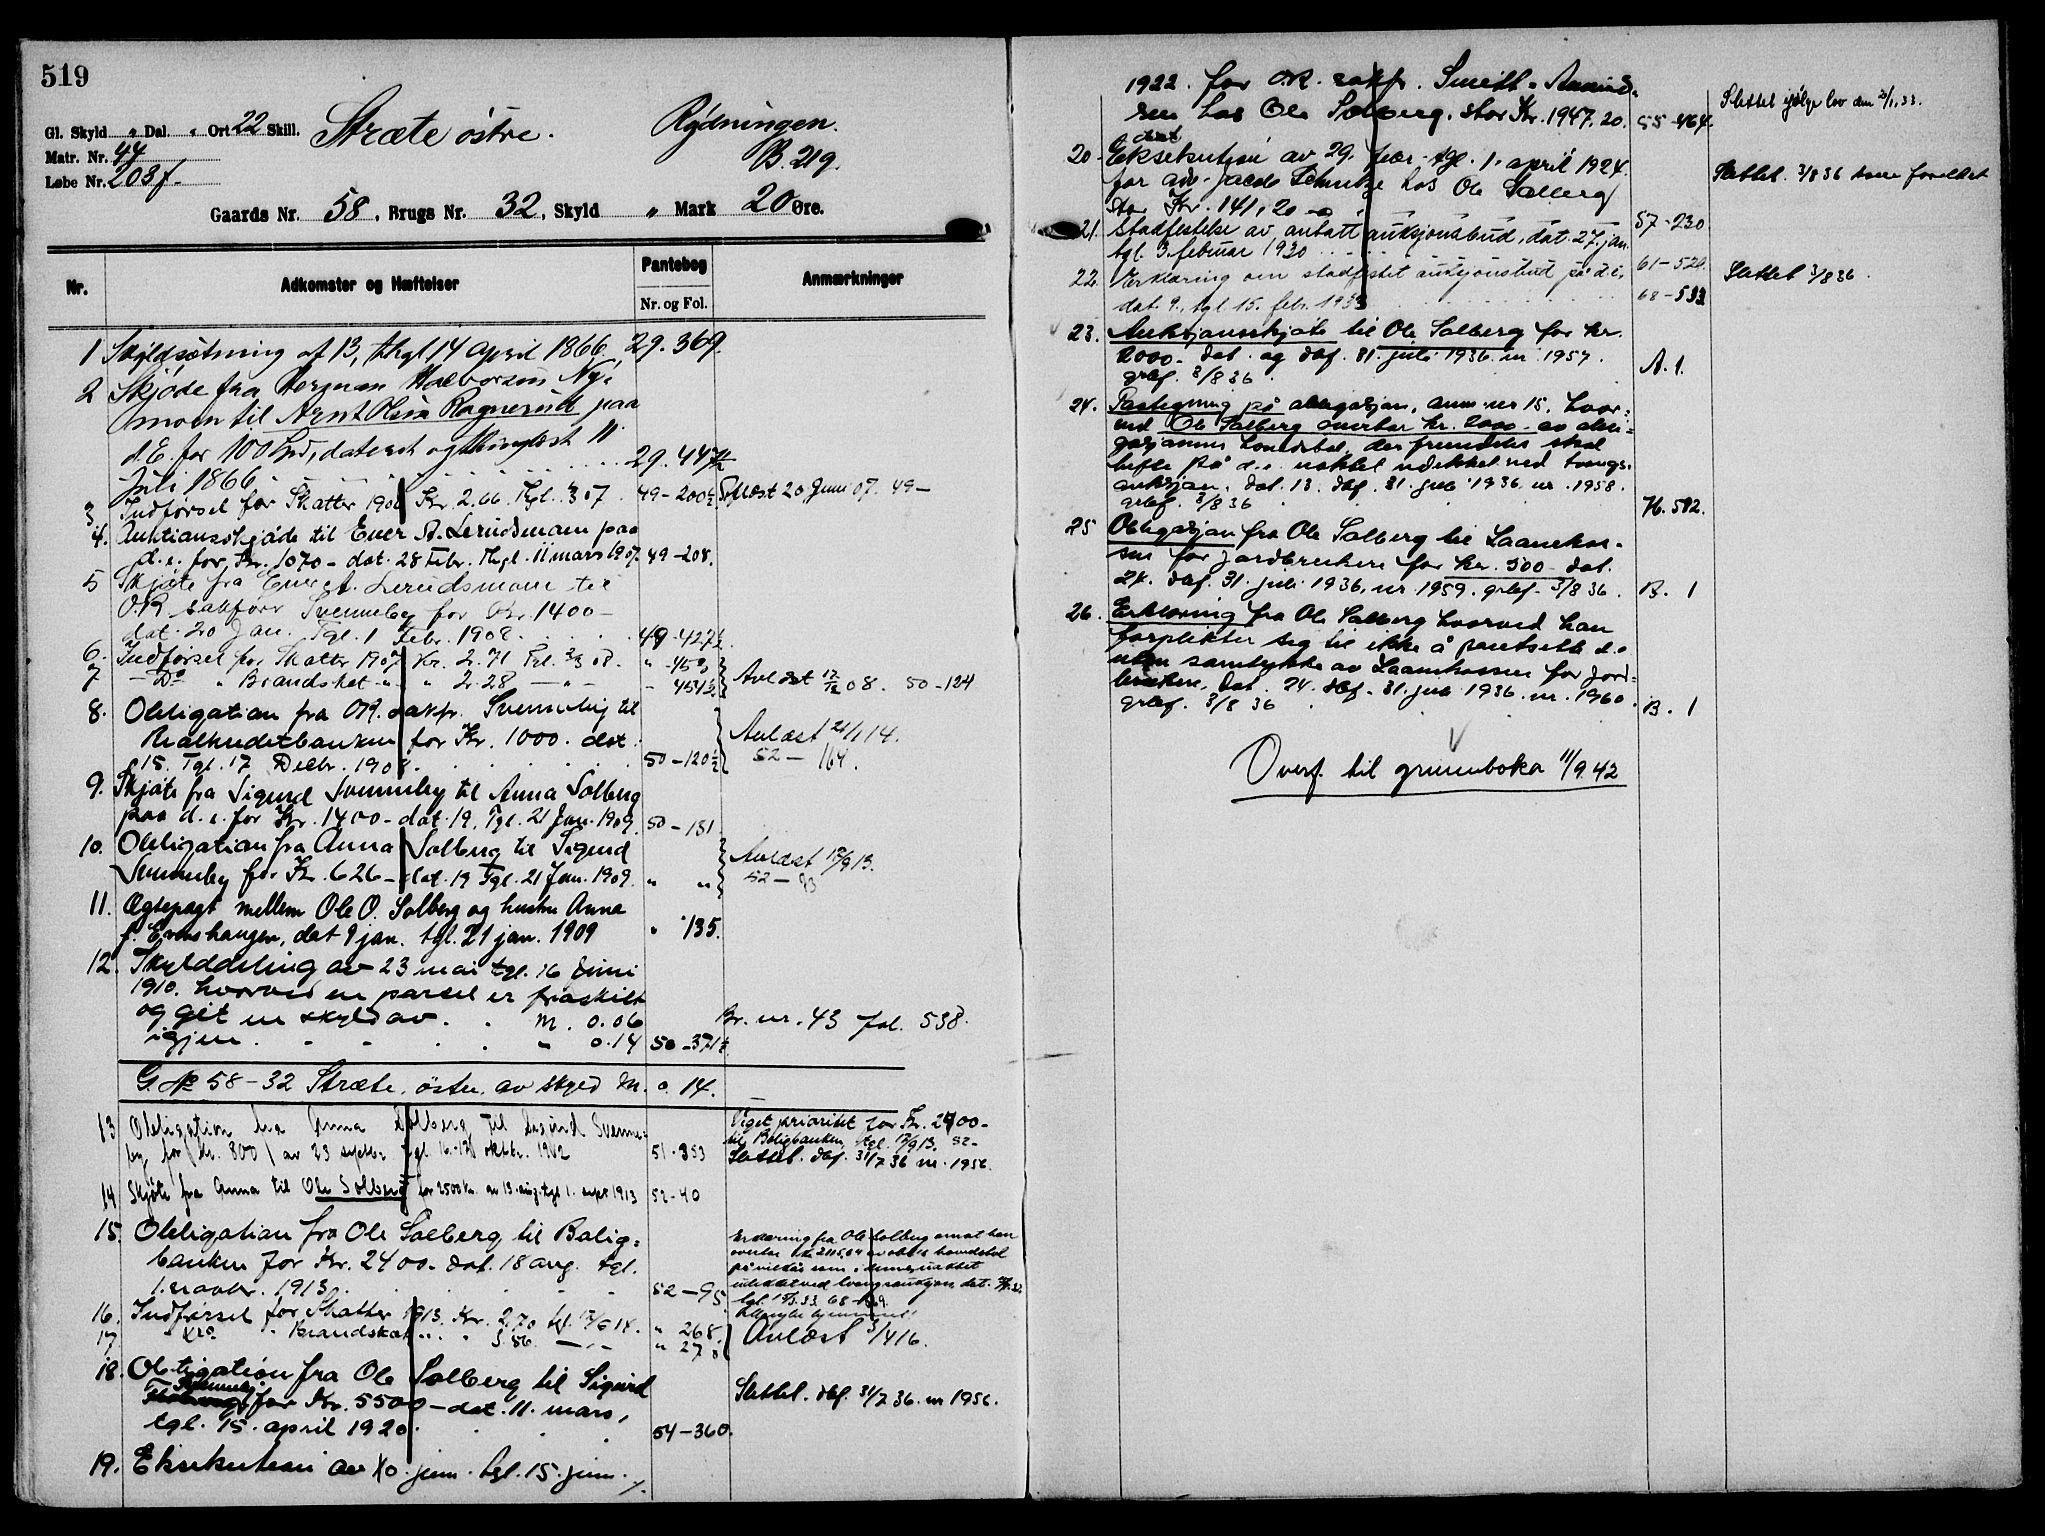 519
Gl. Skyld „ Dal. „ Ort 22 Skill. Stræte østre. Rydningen.
Matr. Nr. 44 B. 219.
Løbe Nr. 203f.
Gaards Nr. 58, Brugs Nr. 32, Skyld „ Mark 20 Øre.
Nr. Adkomster og Hæftelser Pantebog Nr. og Fol. Anmærkninger
1 Skyldsætning af 13, thgl 14 April 1866 29.369.
2 Skjøde fra Herman Halvorsen Ny-
moen til Arnt Olsen Ragnerud paa
d. E. for 100 Spd, dateret og thinglæst 11
Juli 1866 29.447
3 Indførsel for Skatter 1906 Kr. 2.66. Thgl. 07. 49-200½ Aflæst 20 Juni 07. 49-
4. Auktionsskjøde til Ener A. Lerudsmoen paa
d. e. for Kr. 1070 - dat. 28 Febr. Thgl. 11 mars 1907. 49-208.
5 Skjøte fra Ener A. Lerudsmoen til
O.R. sakfører Svenneby for Kr. 1400 -
dat. 20 Jan. Tgl. 1 Febr. 1908. 49-427½
6. Indførsel for Skatter 1907 Kr. 2.71 Tgl. 2/3 08. " -459,
7 - Do " Brandskat - " - " 2.28 - " - - 454½ Avlæst 17/12 08. 50-124
8. Obligation fra OR. sakfr. Svenneby til
Realkreditbanken for Kr. 1000. dat.
15. Tgl. 17 Decbr. 1908. 50-120½ Avlæst 21/1 14.
52 - 164.
9. Skjøte fra Sigurd Svenneby til Anna Solberg
paa d. e. for Kr. 1400 - dat. 19. Tgl. 21 Jan. 1909. 50-131
10. Obligation fra Anna Solberg til Sigurd
Svenneby for Kr. 626 - dat. 19 Tgl. 21 Jan. 1909. " " Avlæst 17/9 13.
52 - 93
11. Ægtepagt mellem Ole O. Solberg og hustru Anna
f. Evenshaugen, dat 9 jan. tgl. 21 jan. 1909 " 135.
12. Skylddeling av 23 mai tgl. 16 Juni
1910. hvorved en parsel er fraskilt
og git en skyld av. M. 0.06 Br. nr. 43 fol. 538.
igjen. " 0.14 50-371½.
G. No 58-32 Stræte, østre, av skyld M. 0.14.
13 Obligation fra Anna Solberg til Sigurd Svenne-
by for kr. 800 / av 23 septbr. tgl. 16. oktbr. 1912 51.353 Viget prioritet for Kr. 2400-
til Boligbanken, tgl. 17/9 13. 52-
Slettet. dbf. 31/7 36 nr. 1956.
14 Skjøte fra Anna til Ole Solberg for 2500 kr. av 13. aug. tgl. 1. sept 1913 52-40
15. Obligation fra Ole Solberg til Bolig-
banken for Kr. 2400. dat. 18 aug. tgl.
1. novbr. 1913. 52-95
Erklæring fra Ole Solberg om at han
overtar kr. 2115,04 av oblts hovedstol
på vilkår som i denne, uansett
utlikket ved tvangsauksjon, dat.
tgl. 15/2 33. 68-
16. Indførsel for Skatter 1913. Kr. 2.70 tgl. 17/6 14. " 268.
17 " Do. " Brandskat " " 3.56 - " - " 270 Avlæst 3/4 16.
18. Obligation fra Ole Solberg til Sigurd
Svenneby for Kr. 5500 - dat. 11. mars,
tgl. 15. april 1920. 54-360. Slettet. dbf. 31/7 36. nr 1956.
19. Eksekution av 10. juni. tgl. 15. juni.
1922. for O.R. sakfr. Smith-Amund-
sen hos Ole Solberg. stor Kr. 1947.20. 55-464. Slettet ifølge lov den
20. Eksekution dat av 29. febr. tgl. 1. april 1924.
for adv. Jacob Schnitze hos Ole Solberg
stor Kr. 141,20 57-230 Slettet. 3/8 36 som foreldet
21. Stadfestelse av antatt auksjonsbud, dat. 27. jan.
tgl. 3. februar 1930 61-526.
22. Erklæring om stadfestet auksjonsbud på d. e.,
dat. 9. tgl 15. febr. 1933 68-533 Slettet 3/8 36.
23. Auksjonsskjøte til Ole Solberg for kr.
2000.- dat. og dbf. 31. juli 1936. nr. 1957.
grbf. 3/8 36 A. 1.
24. Påtegning på obligasjon, anm. nr 15. hvor-
ved Ole Solberg overtar kr. 2000.- av obli-
gasjonens hovedstol, der fremdeles skal
hefte på d. e. uaktet utlikket ved tvangs-
auksjon. dat. 13. dbf. 31. juli 1936. nr. 1958.
grbf. 3/8 36 H. 592.
25 Obligasjon fra Ole Solberg til Laanekas-
sen for jordbrukere for kr. 500 - dat.
24. dbf. 31. juli 1936. nr. 1959. grbf. 3/8 36. B. 1
26. Erklæring fra Ole Solberg hvorved han
forplikter seg til ikke å pantsette d. e.
uten samtykke av Laanekassen for jord-
brukere, dat. 24. dbf. 31. juli 1936. nr. 1960.
grbf. 3/8 36 B. 1
Overf. til grunnboka 11/9 42